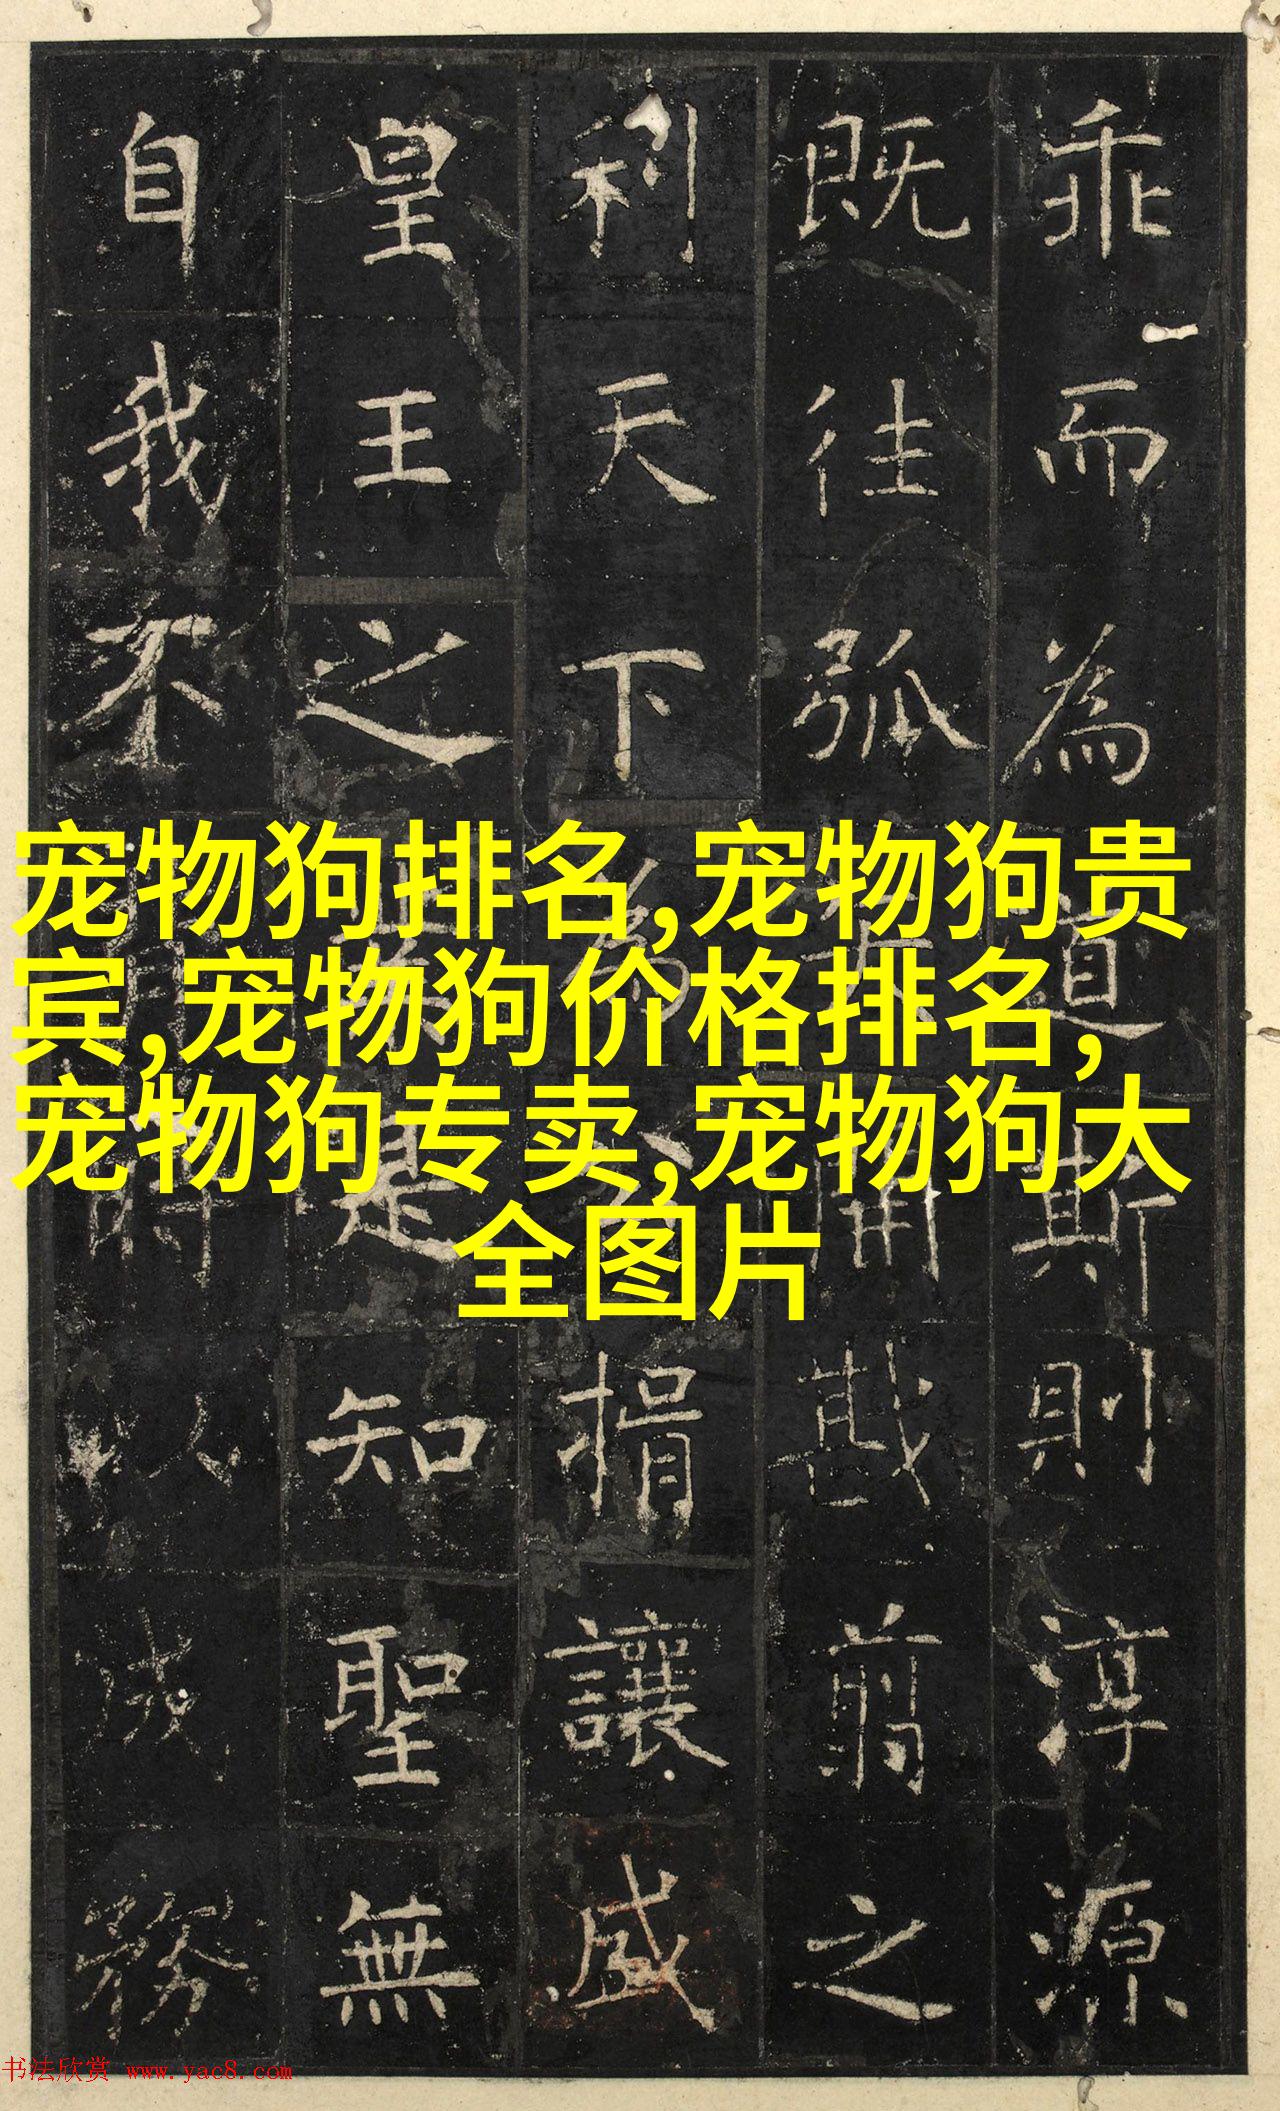 乖而為道斯則淳源
既往弧開戡翦之
利天下為揖讓盛
皇王之是知聖無
自我不時以成務
宠物狗排名,宠物狗贵
宾,宠物狗价格排名,
宠物狗专卖,宠物狗大
全图片
书法欣赏 www.yac8.com